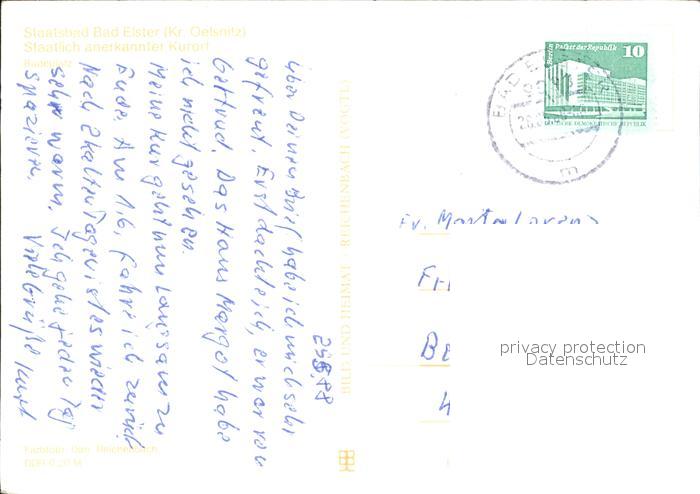 Staatsbad Bad Elster (Kr. Oelsnitz)
Staatlich anerkannter Kurort
Badeplatz
über Deinen Brief habe ich mich sehr
gefreut. Erst dachte ich, er war von
Gertrud. Das Haus Margot habe
ich nicht gesehen.
Meine Kur geht nun langsam zu
Ende. Am 1.6. fahre ich zurück
Nach 2 kalten Tagen ist es wieder
sehr warm. Ich gehe jeden Tag
spazieren. Viele Grüße Kurt
Farbfoto: Darr, Reichenbach
DDR 0,20 M
BILD UND HEIMAT · REICHENBACH (VOGTL)
Berlin Palast der Republik 10
DEUTSCHE DEMOKRATISCHE REPUBLIK
BAD
m
Fr. Marta Lorenz
privacy protection
Datenschutz